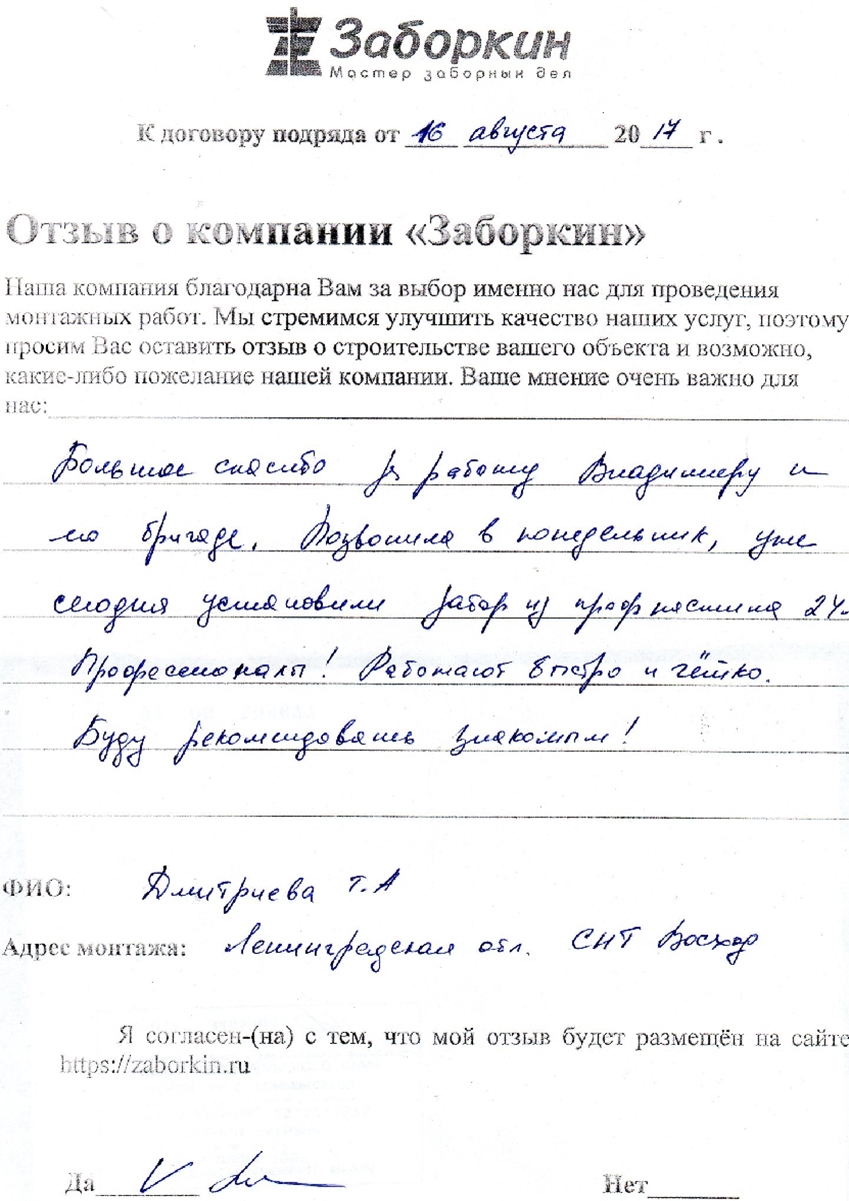 Заборкин
Мастер заборных дел
К договору подряда от 16 августа 2017 г.
Отзыв о компании «Заборкин»
Наша компания благодарна Вам за выбор именно нас для проведения
монтажных работ. Мы стремимся улучшить качество наших услуг, поэтому
просим Вас оставить отзыв о строительстве вашего объекта и возможно,
какие-либо пожелание нашей компании. Ваше мнение очень важно для
нас:
Большое спасибо за работу Владимиру и
его бригаде. Позвонила в понедельник, уже
сегодня установили забор из профнастила 24
Профессионалы! Работают быстро и чётко.
Буду рекомендовать знакомым!
ФИО: Дмитриева Т.А
Адрес монтажа: Ленинградская обл. СНТ Восход
Я согласен-(на) с тем, что мой отзыв будет размещён на сайте
https://zaborkin.ru
Да V Нет